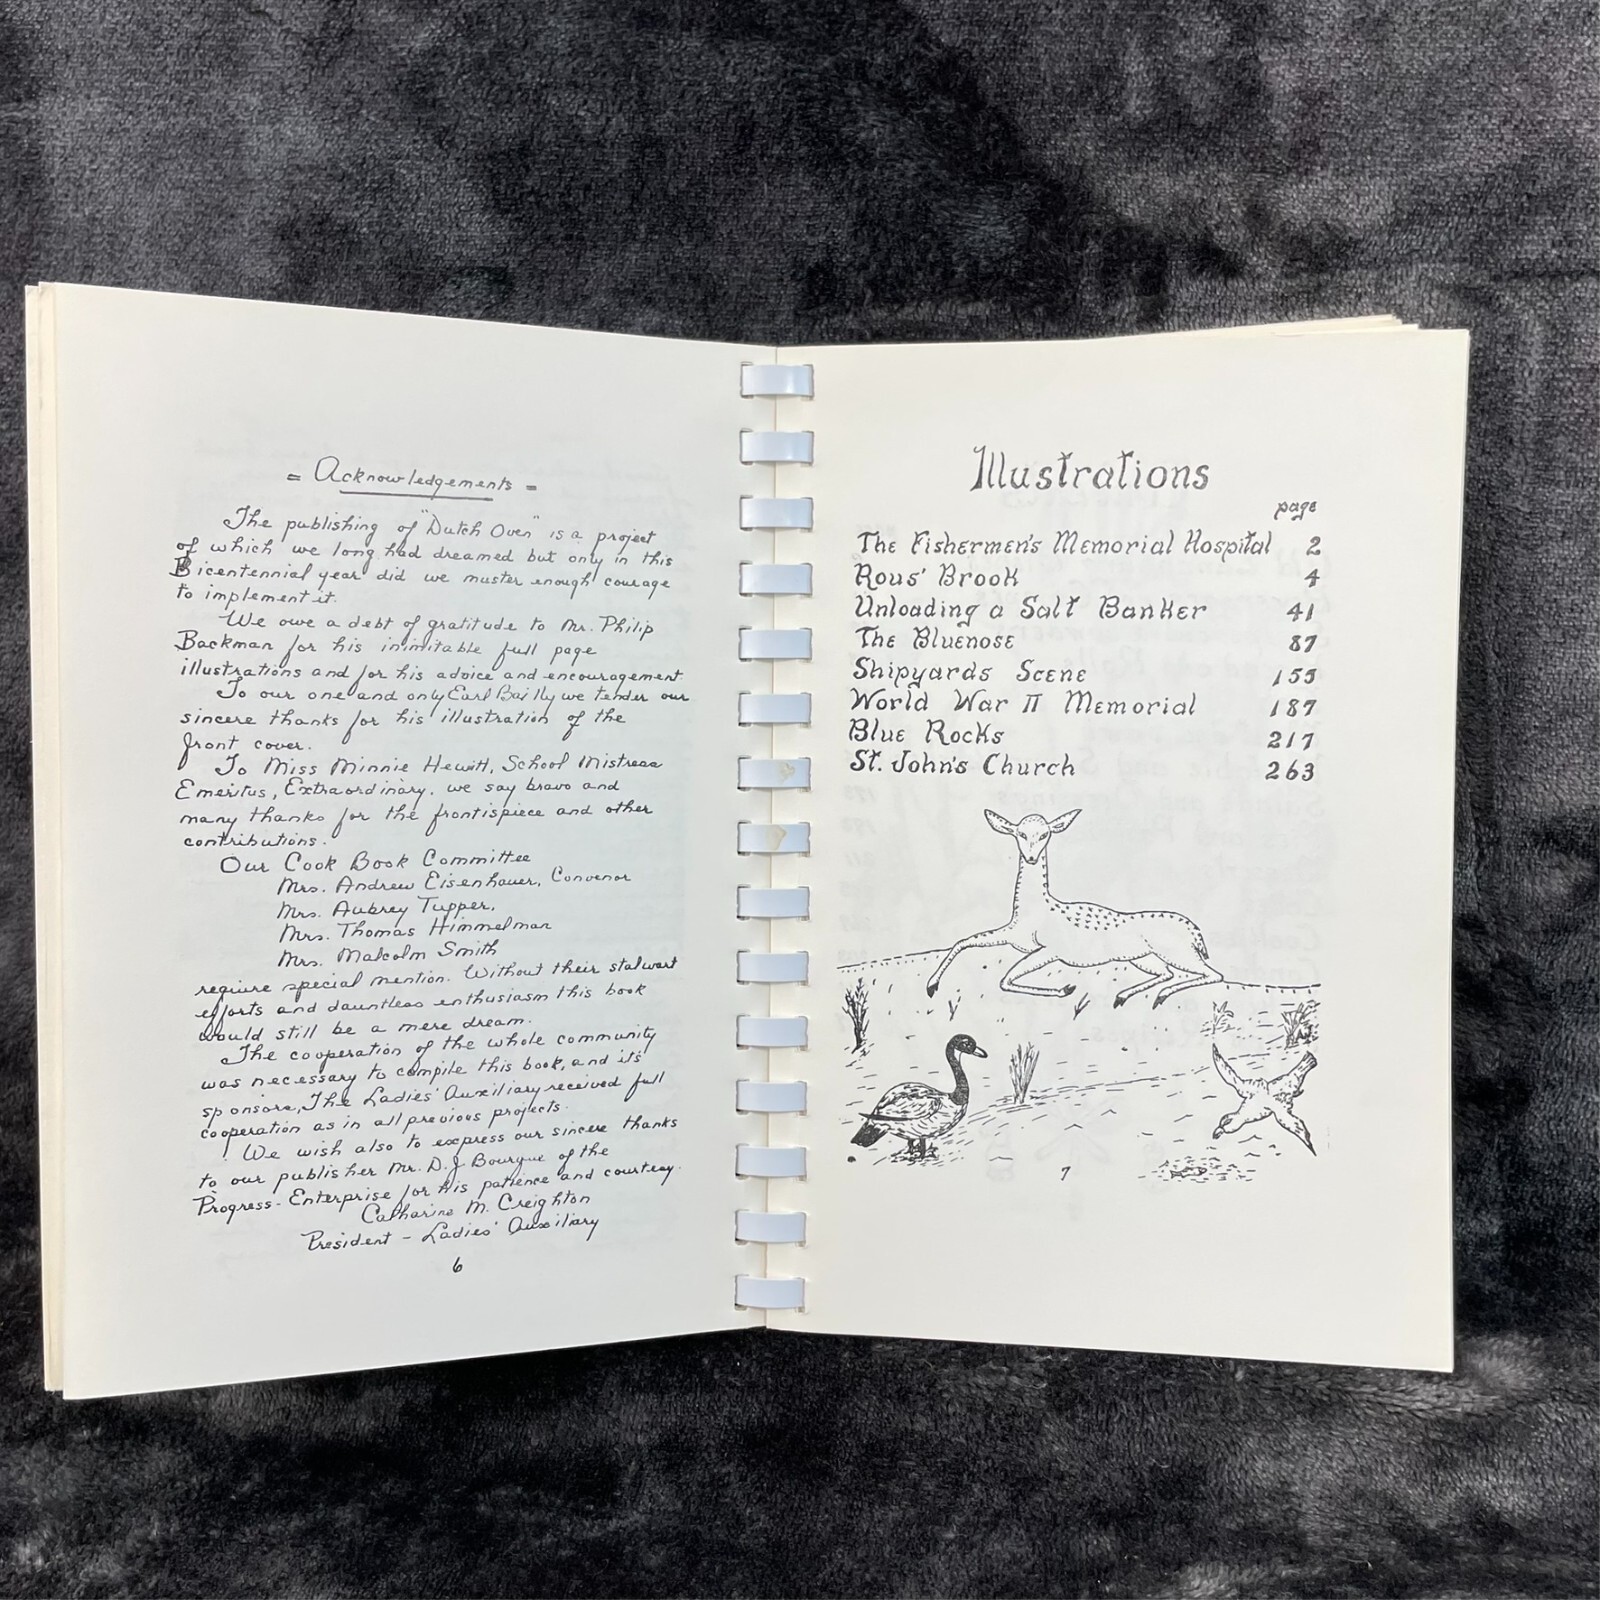 = Acknowledgements =
The publishing of "Dutch Oven" is a project
of which we long had dreamed but only in this
Bicentennial year did we muster enough courage
to implement it.
We owe a debt of gratitude to Mr. Philip
Backman for his inimitable full page
illustrations and for his advice and encouragement
To our one and only Earl Bailly we tender our
sincere thanks for his illustration of the
front cover.
To Miss Minnie Hewitt, School Mistress
Emeritus, Extraordinary, we say bravo and
many thanks for the frontispiece and other
contributions.
Our Cook Book Committee
Mrs. Andrew Eisenhauer, Convenor
Mrs. Aubrey Tupper,
Mrs. Thomas Himmelman
Mrs. Malcolm Smith
require special mention. Without their stalwart
efforts and dauntless enthusiasm this book
would still be a mere dream.
The cooperation of the whole community
was necessary to compile this book, and it's
sponsors, The Ladies' Auxiliary received full
cooperation as in all previous projects.
We wish also to express our sincere thanks
to our publisher Mr. D.J. Bourque of the
Progress-Enterprise for his patience and courtesy.
Catharine M. Creighton
President - Ladies' Auxiliary
6
Illustrations
page
The Fishermen's Memorial Hospital 2
Rous' Brook 4
Unloading a Salt Banker 41
The Bluenose 87
Shipyards Scene 155
World War II Memorial 187
Blue Rocks 217
St. John's Church 263
7